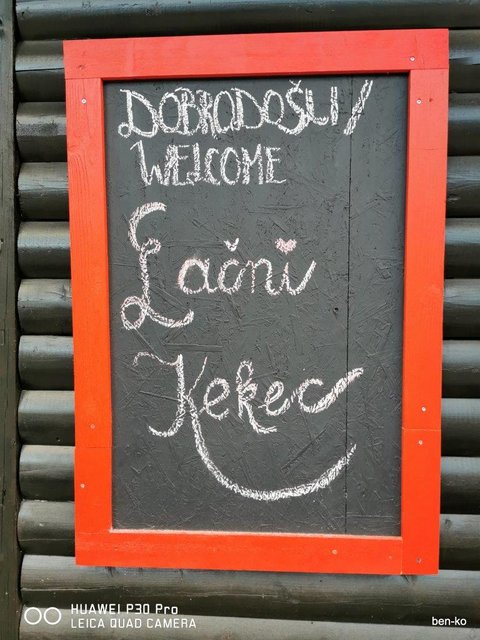 DOBRODOŠLI/
WELCOME
Lačni
Kekec
HUAWEI P30 Pro
LEICA QUAD CAMERA
ben-ko